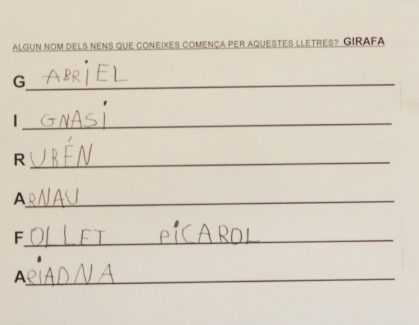 ALGUN NOM DELS NENS QUE CONEIXES COMENÇA PER AQUESTES LLETRES? GIRAFA
G ABRIEL
I GNASI
R UBÉN
ARNAU
FOLLET PICAROL
ARIADNA